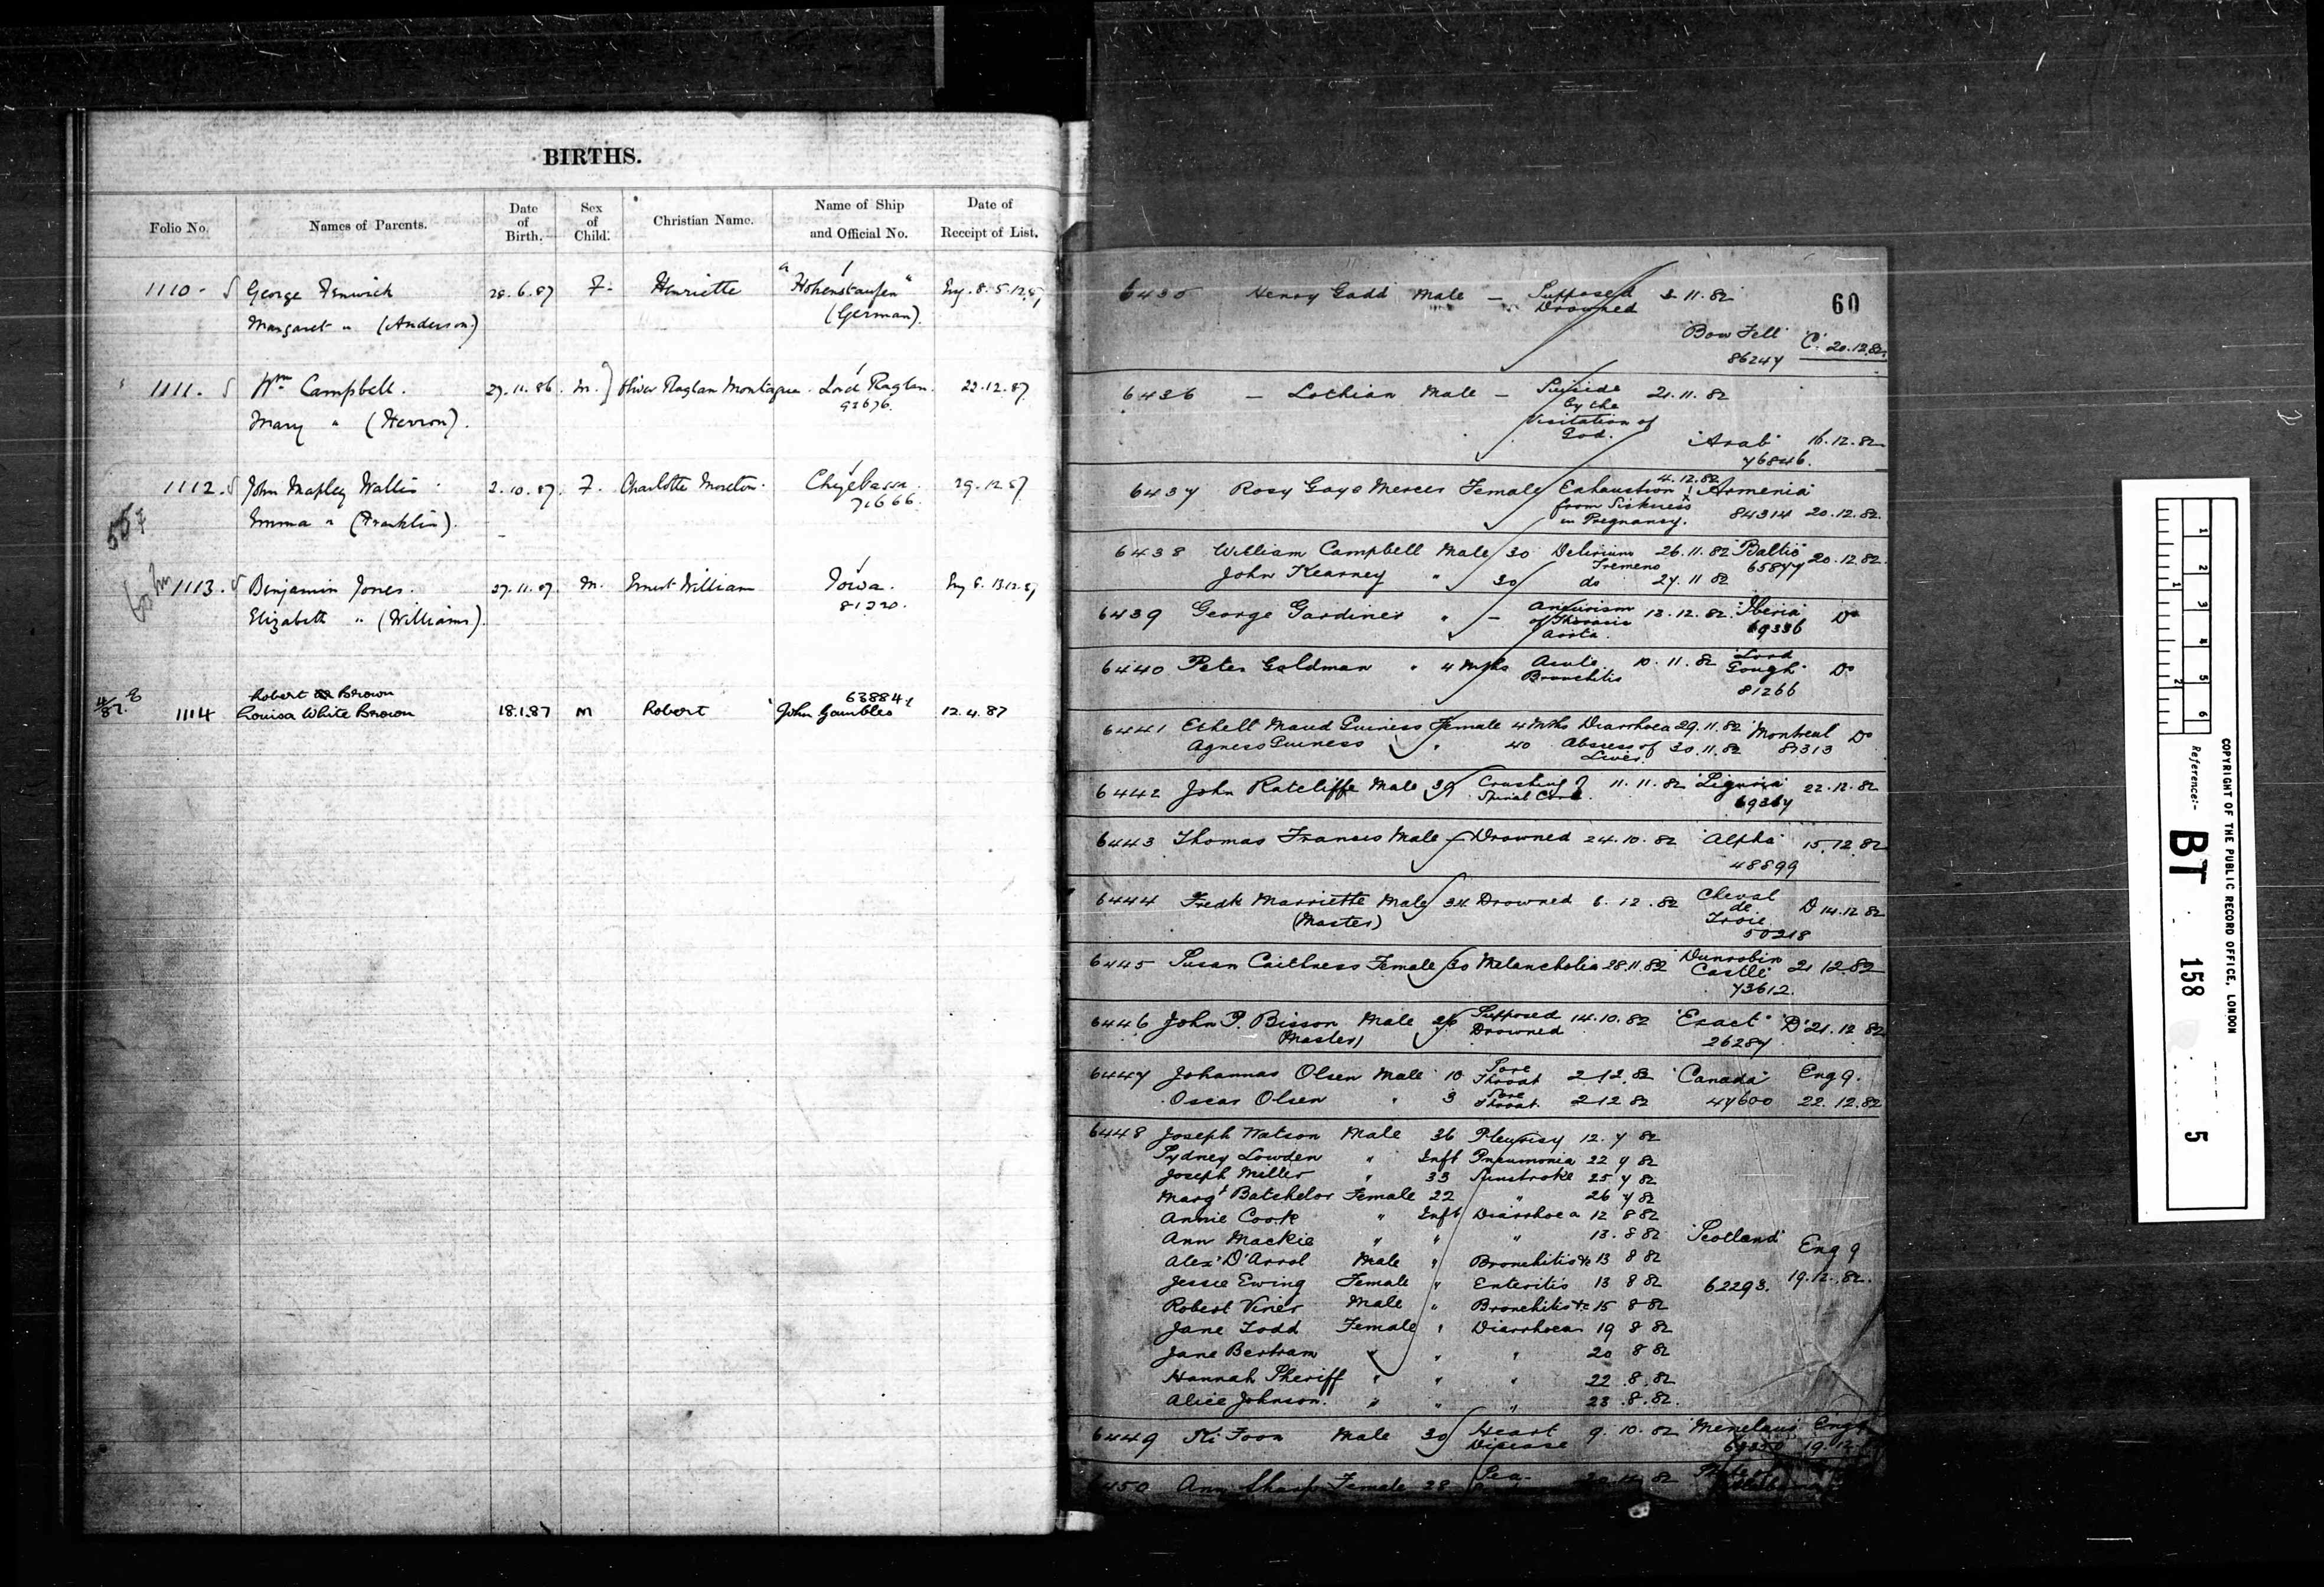 BIRTHS.
Folio No. Names of Parents. Date of Birth. Sex of Child. Christian Name. Name of Ship and Official No. Date of Receipt of List.
1110 George Fenwick 28.6.87 F. Henriette "Hohenstaufen" Eng. 8. 5.12.87
Margaret " (Anderson) (German).
1111. Wm Campbell. 27.11.86. M. Oliver Raglan Montague. Lord Raglan. 22.12.87
Mary " (Herron). 92676.
1112. John Mapley Wallis 2.10.87. F. Charlotte Moreton. Chyebassa. 29.12.87
Emma " (Franklin). 71666.
1113. Benjamin Jones. 27.11.87. M. Ernest William Iowa. Eng 8. 13.12.87
Elizabeth " (Williams). 81220.
Robert Brown 63884
1114 Louisa White Brown 18.1.87 M Robert John Gambles 12.4.87
60
6435 Henry Gadd Male — Supposed 3.11.82
Drowned
'Bow Fell' 'C' 20.12.82
86247
6436 — Lothian Male — Suicide 21.11.82
by the
Visitation of
God. 'Arab' 16.12.82
76846.
4.12.82
6437 Rosy Gaye Mercer Female Exhaustion 'Armenia'
from Sickness 84314 20.12.82.
in Pregnancy.
6438 William Campbell Male 30 Delirium 26.11.82 'Baltic' 20.12.82.
Tremens 65877
John Kearney " 30 do 27.11.82
6439 George Gardiner " — Aneurism 13.12.82. 'Iberia' Do
of Thoracic 69336
Aorta.
6440 Peter Goldman " 4 Mths Acute 10.11.82 'Lord Do
Bronchitis Gough'
81266
6441 Ethell Maud Guiness Female 4 Mths Diarrhoea 29.11.82 'Montreal Do
Agness Guiness " 40 Abscess of 30.11.82 87313
Liver.
6442 John Ratcliffe Male 39 Crushing of 11.11.82 'Liguria' 22.12.82
Spinal Cord. 69367
6443 Thomas Frances Male — Drowned 24.10.82 'Alpha' 15.12.82
48899
6444 Fredk Marriette Male 34 Drowned 6.12.82 Cheval D 14.12.82
(Master) de
Troie
50218
6445 Susan Caithness Female 30 Melancholia 28.11.82 'Dunrobin 21 12.82
Castle'
73612.
6446 John P. Bisson Male 26 Supposed 14.10.82 'Exact' 'D' 21.12.82
Master) Drowned 26287
6447 Johannas Olsen Male 10 Sore 2 12.82 'Canada' Eng 9.
Throat
Oscar Olsen " 3 Sore 2 12 82 47600 22.12.82
Throat.
6448 Joseph Watson Male 36 Pleurisy 12.7 82
Sydney Lowden " Inft Pneumonia 22 7 82
Joseph Miller " 33 Sunstroke 25 7 82
Margt Batchelor Female 22 " 26 7 82
Annie Cook " Inft Diarrhoea 12 8 82
Ann Mackie " " " 13.8 82 'Scotland' Eng 9
Alex' D'Arrol Male " Bronchitis &c 13 8 82
Jessie Ewing Female " Enteritis 13 8 82 62293. 19.12.82.
Robert Viner Male " Bronchitis &c 15 8 82
Jane Todd Female " Diarrhoea 19 8 82
Jane Bertram " " " 20 8 82
Hannah Sheriff " " " 22.8.82
Alice Johnson. " " " 23.8.82.
6449 Ki Foon Male 30 Heart 9.10.82 'Menelaus' Eng 9
Disease 19.12
6450 Ann Sharp Female 28
COPYRIGHT OF THE PUBLIC RECORD OFFICE, LONDON
Reference:-
BT 158 5
1 2 3 4 5 6
1 2